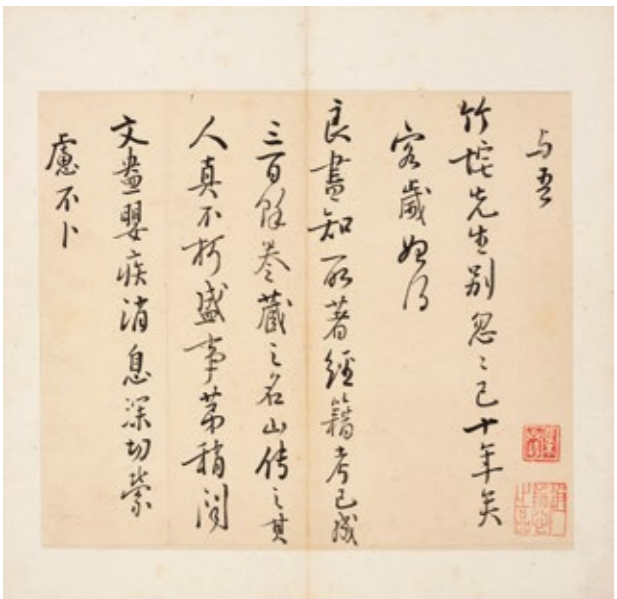 与吾
竹垞先生别忽々已十年矣
客歲始得
良盡知所著經籍考已成
三百餘卷藏之名山傳之其
人真不朽盛事第稍聞
文盎嬰疾消息深切縈
慮不卜